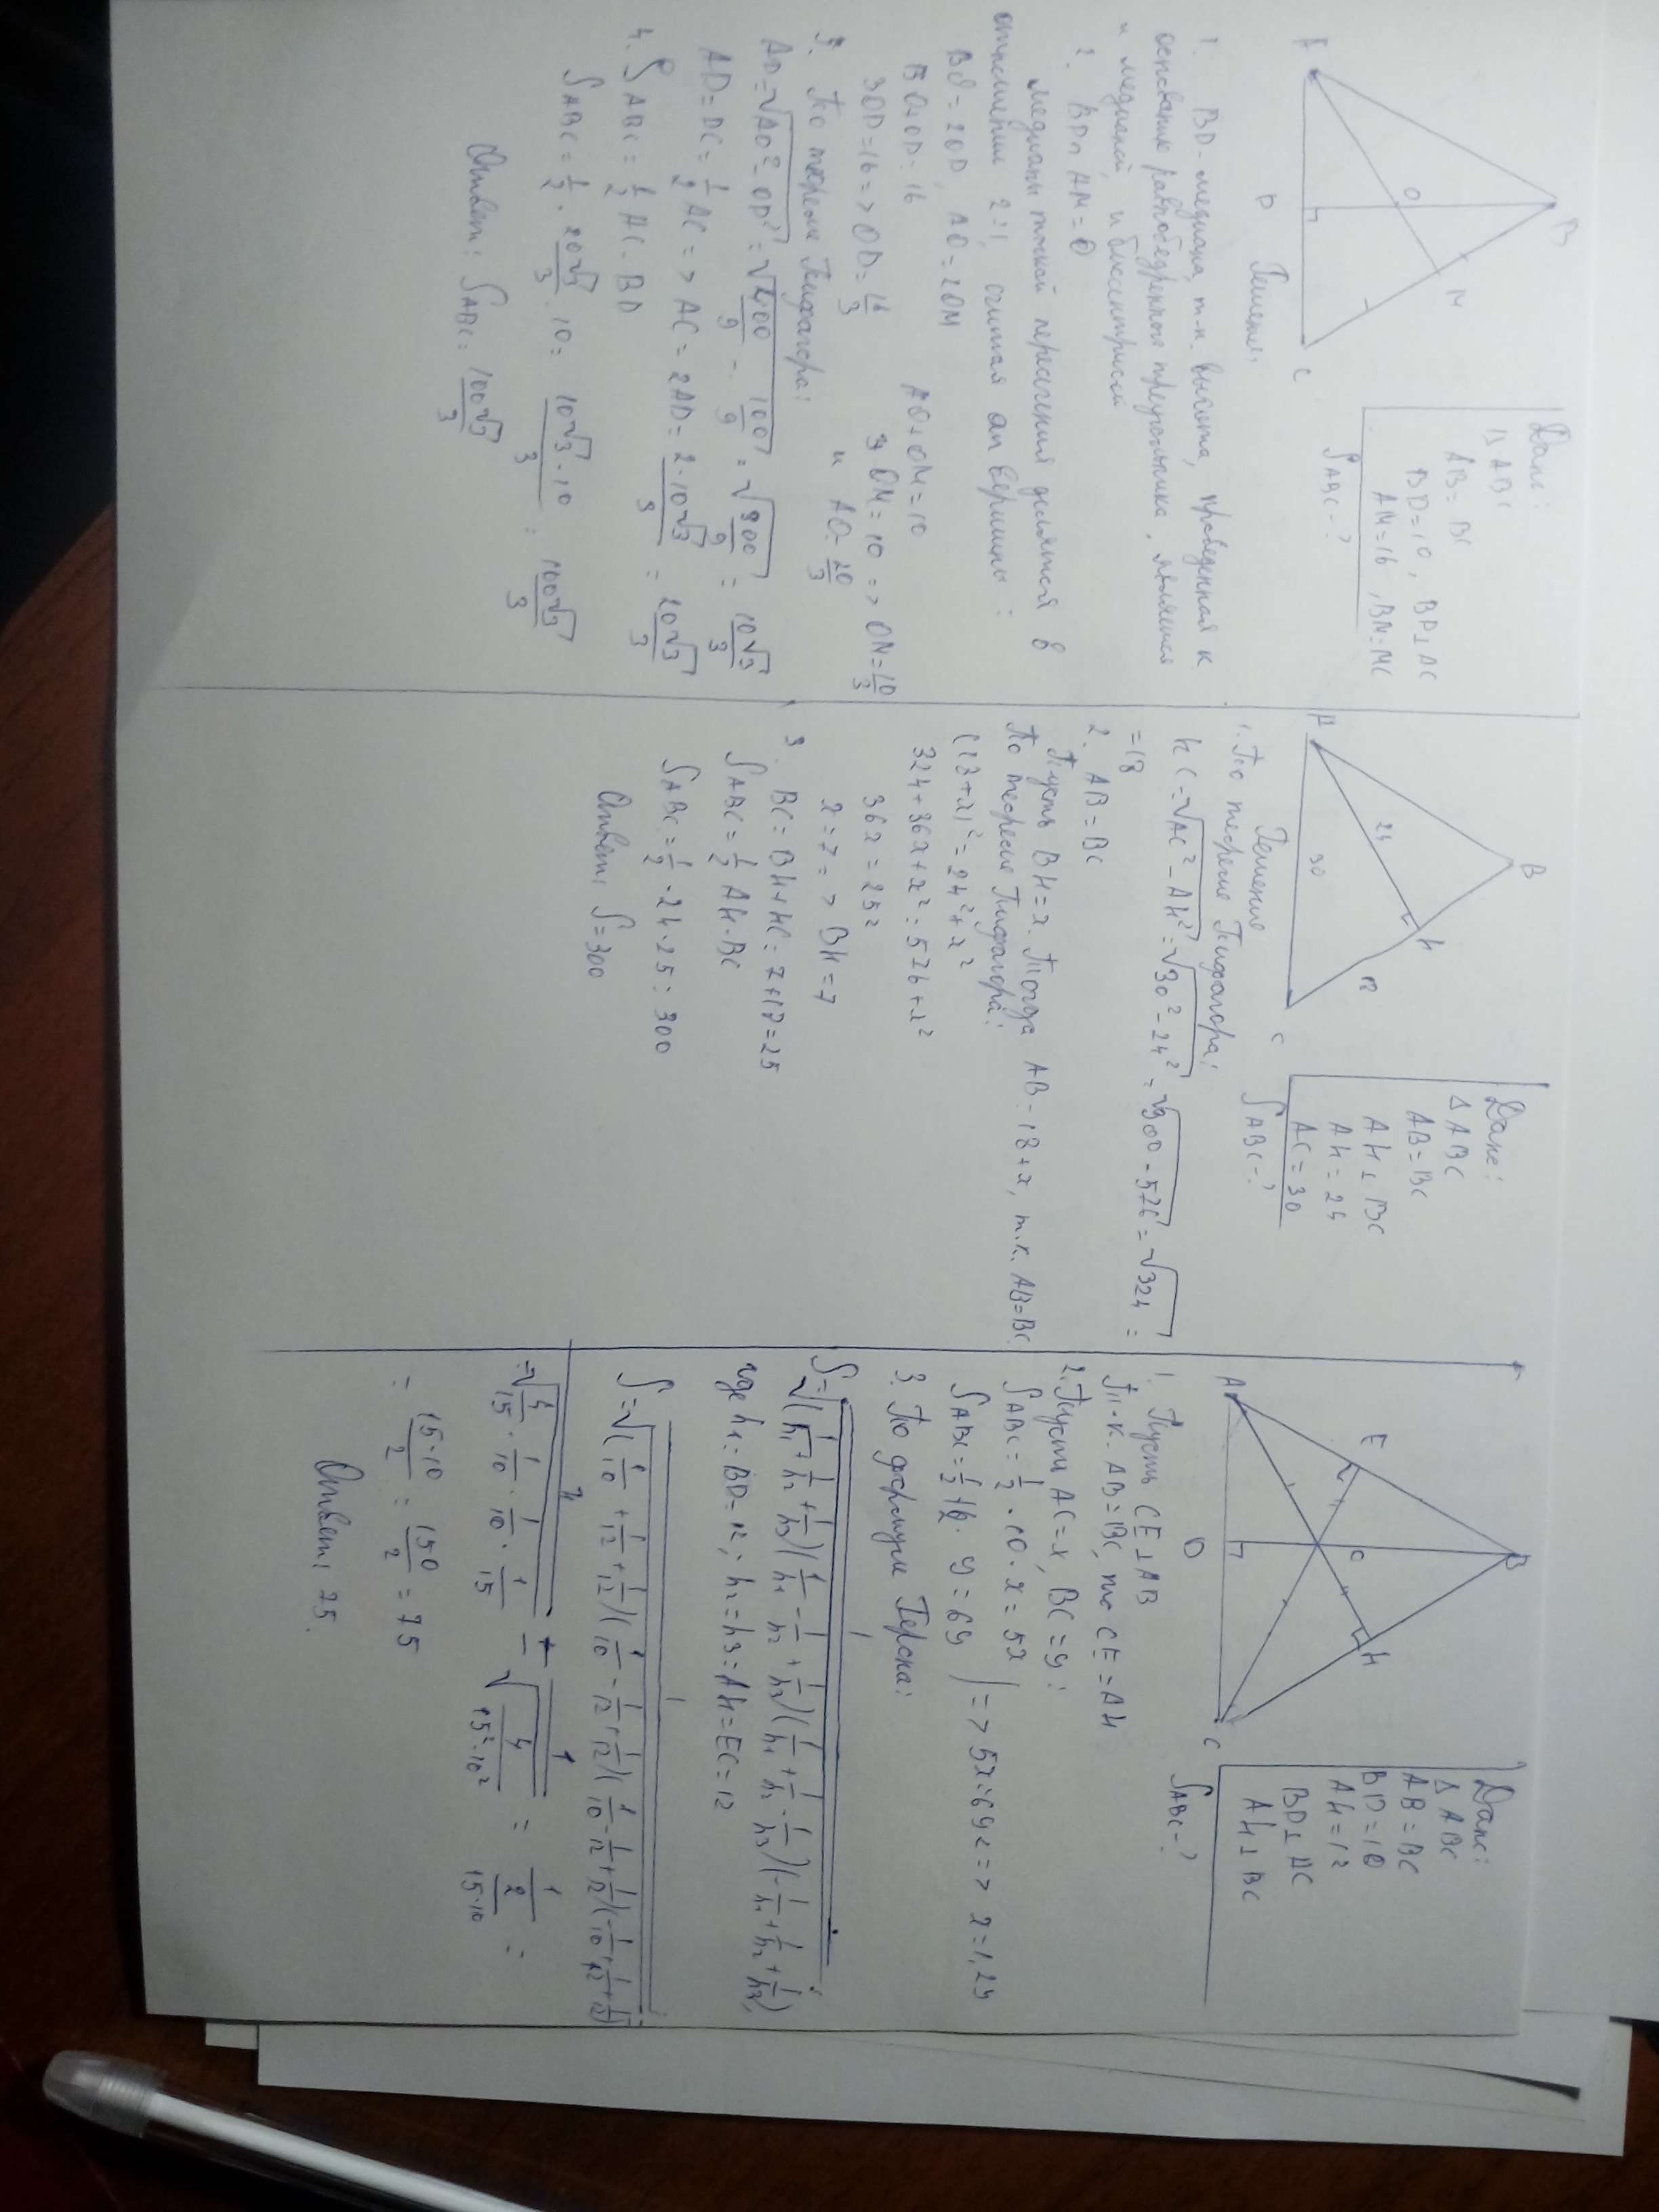 B
M
O
A
D
C
Дано:
Δ ABC
AB = BC
BD = 10, BD ⊥ AC
AM = 16, BM = MC
S ABC - ?
Решение:
1. BD - медиана, т.к. высота, проведенная к
основанию равнобедренного треугольника, является
и медианой, и биссектрисой
2. BD ∩ AM = O
Медианы точкой пересечения делятся в
отношении 2:1, считая от вершины:
BO = 2OD, AO = 2OM
BO + OD = 16 AO + OM = 10
3OD = 16 => OD = 16/3 3OM = 10 => OM = 10/3
и AO = 20/3
3. По теореме Пифагора:
AD = √(AO² - OD²) = √(400/9 - 100/9) = √(300/9) = 10√3/3
AD = DC = 1/2 AC => AC = 2AD = 2·10√3/3 = 20√3/3
4. S ABC = 1/2 AC · BD
S ABC = 1/2 · 20√3/3 · 10 = 10√3·10/3 = 100√3/3
Ответ: S ABC = 100√3/3
B
24
H
18
A
30
C
Дано:
Δ ABC
AB = BC
AH ⊥ BC
AH = 24
AC = 30
S ABC - ?
Решение
1. По теореме Пифагора:
HC = √(AC² - AH²) = √(30² - 24²) = √(900 - 576) = √324 =
= 18
2. AB = BC
Пусть BH = x. Тогда AB = 18 + x, т.к. AB = BC.
По теореме Пифагора:
(18 + x)² = 24² + x²
324 + 36x + x² = 576 + x²
36x = 252
x = 7 => BH = 7
3. BC = BH + HC = 7 + 18 = 25
S ABC = 1/2 AH · BC
S ABC = 1/2 · 24 · 25 = 300
Ответ: S = 300
B
E
O
H
A
D
C
Дано:
Δ ABC
AB = BC
BD = 10
AH = 12
BD ⊥ AC
AH ⊥ BC
S ABC - ?
1. Пусть CE ⊥ AB
Т.к. AB = BC, то CE = AH
2. Пусть AC = x, BC = y:
S ABC = 1/2 · 10 · x = 5x
S ABC = 1/2 · 12 · y = 6y | => 5x = 6y <=> x = 1,2y
3. По формуле Герона:
S = 1/√((1/h₁ + 1/h₂ + 1/h₃)(1/h₁ - 1/h₂ + 1/h₃)(1/h₁ + 1/h₂ - 1/h₃)(-1/h₁ + 1/h₂ + 1/h₃)),
где h₁ = BD = 12; h₂ = h₃ = AH = EC = 12
S = 1/√((1/10 + 1/12 + 1/12)(1/10 - 1/12 + 1/12)(1/10 - 1/12 + 1/12)(-1/10 + 1/12 + 1/12)) =
= 1/√(4/15 · 1/10 · 1/10 · 1/15) = 1/√(4/15²·10²) = 1/(2/15·10) =
= 15·10/2 = 150/2 = 75
Ответ: 75.